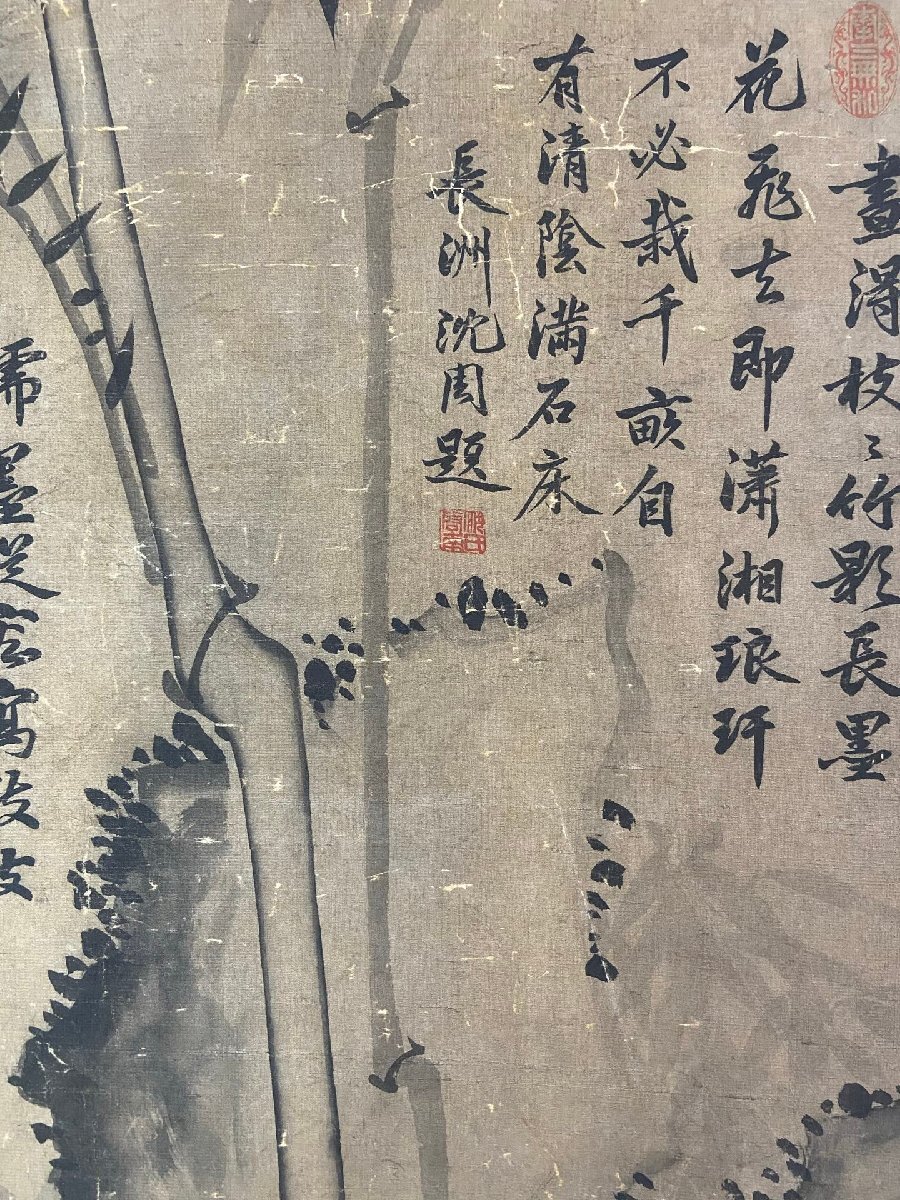 畫得枝〻竹影長墨
花飛去即瀟湘琅玕
不必栽千畝自
有清陰滿石床
長洲沈周題
濡墨從容寫數